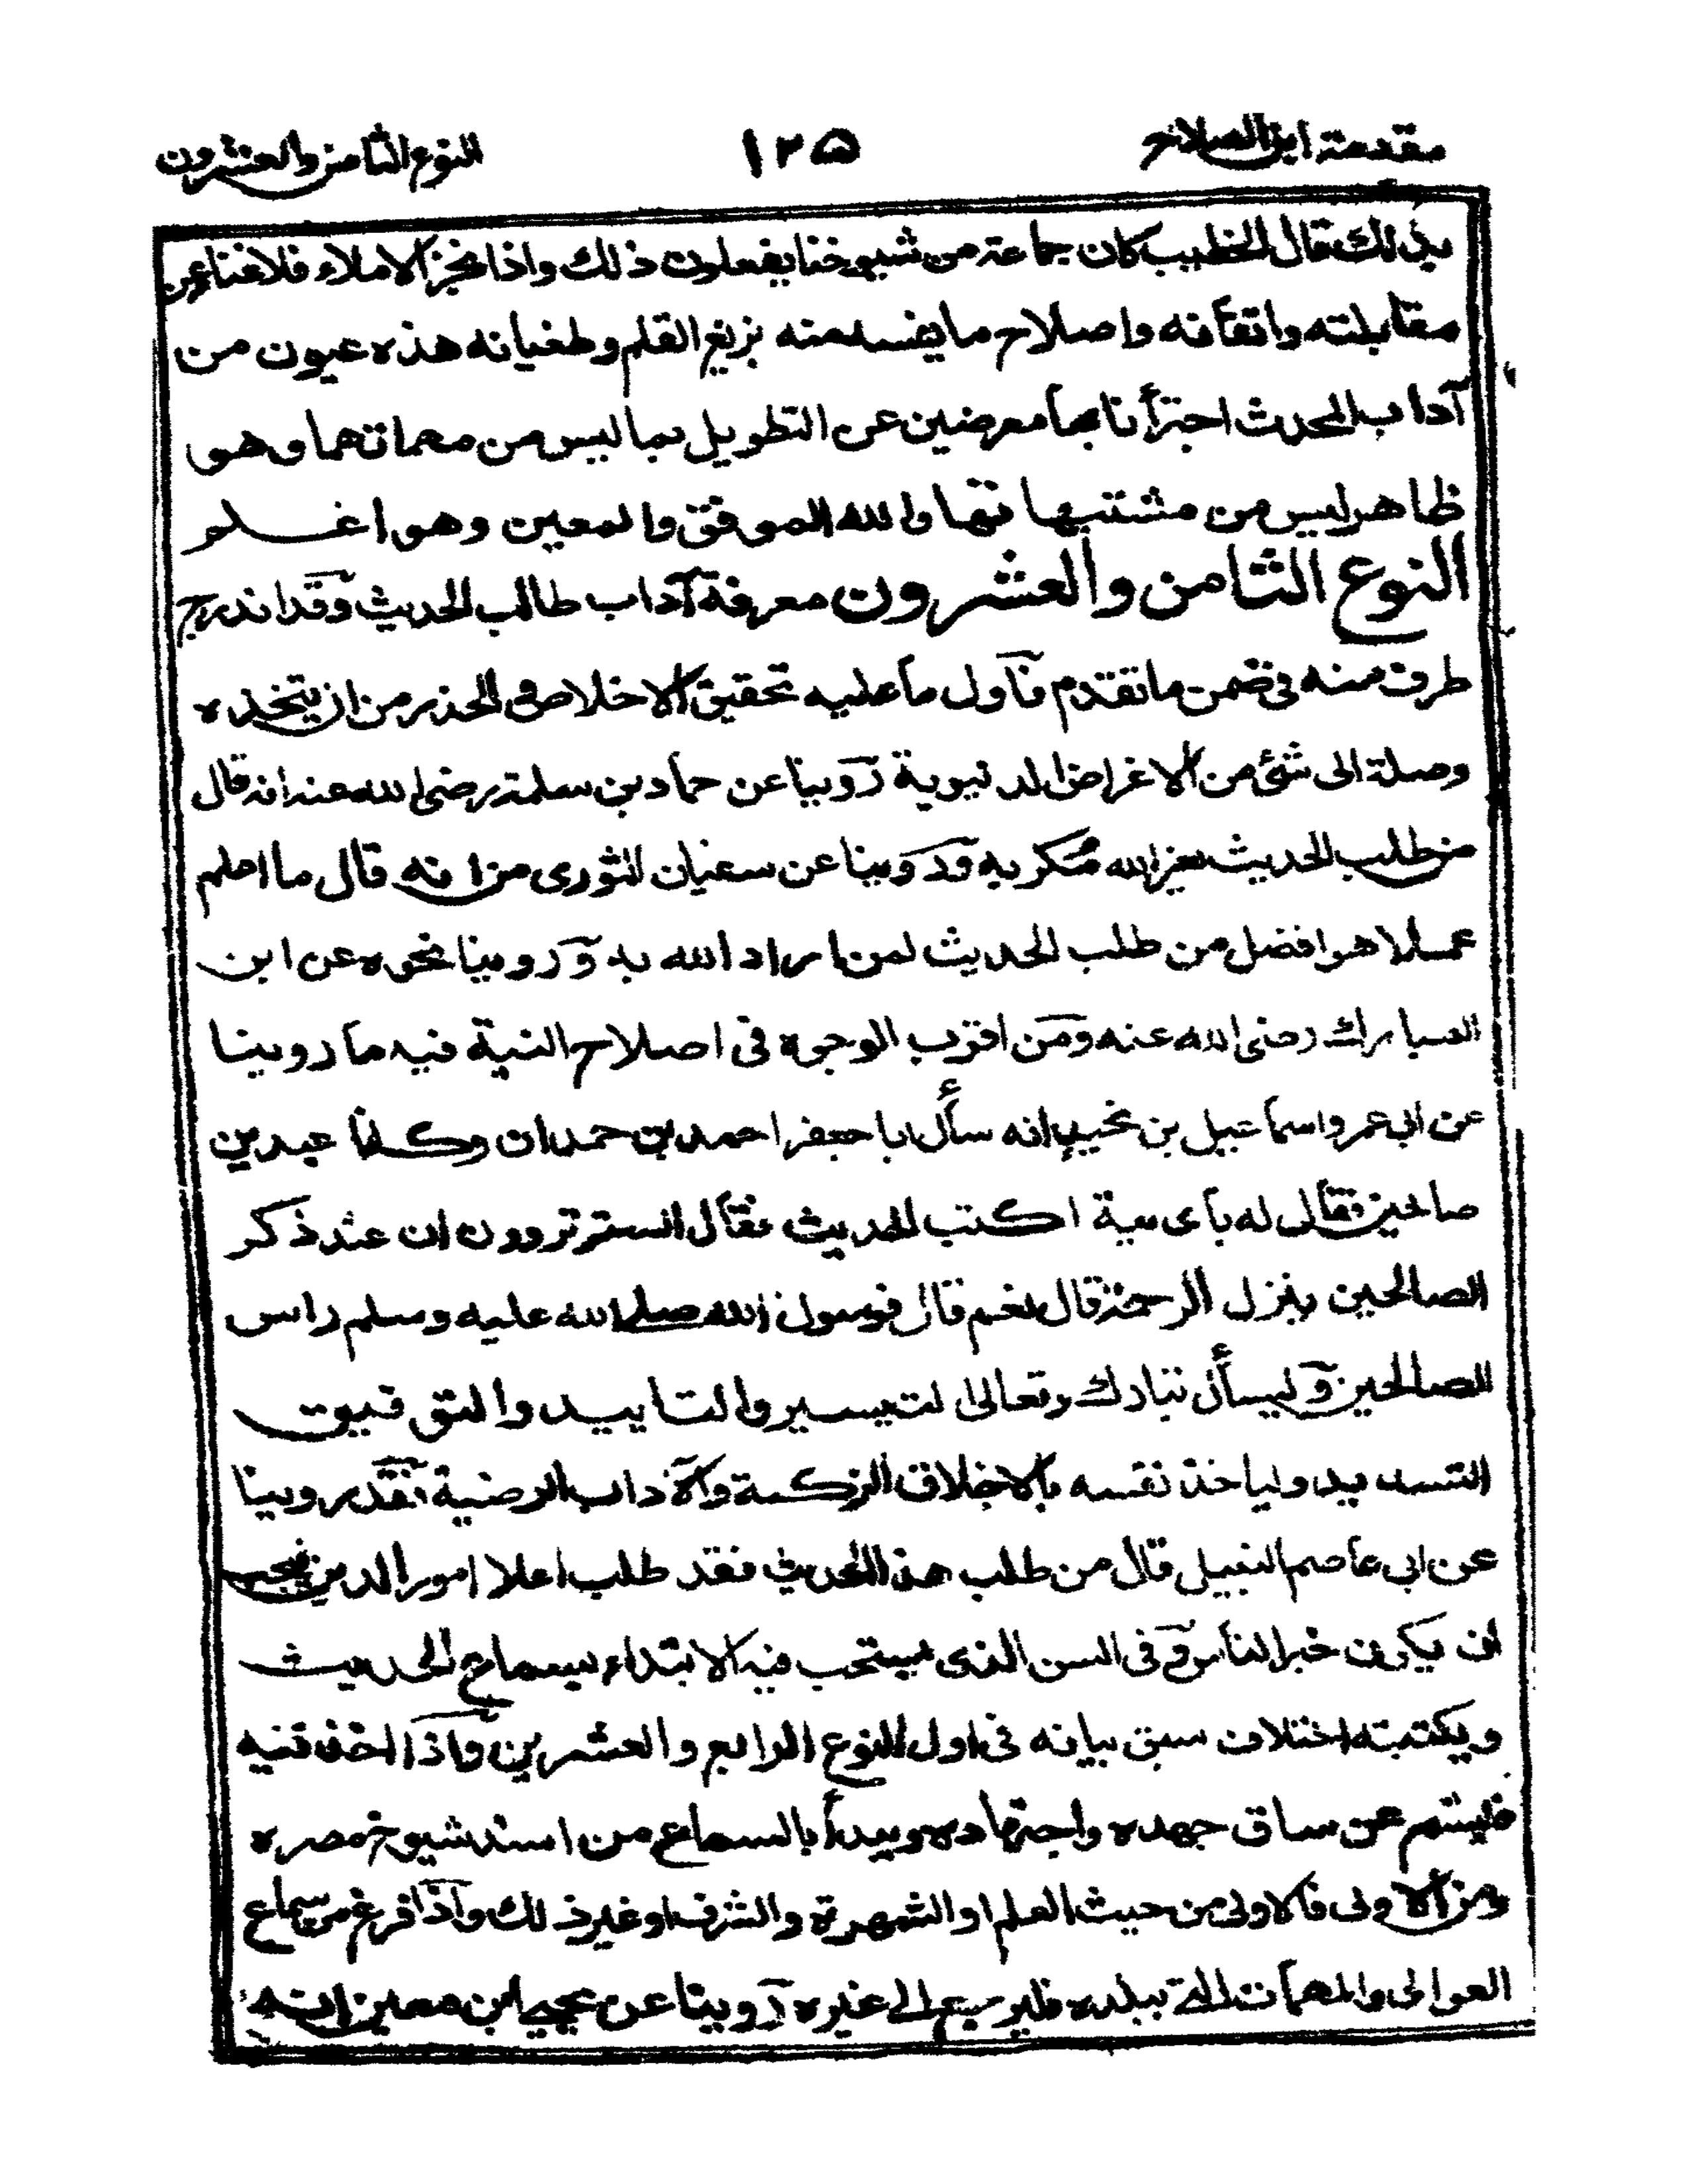 مقدمة ابن الصلاح ١٢٥ النوع الثامن والعشرون
بذلك قال الخطيب كان جماعة من شيوخنا يفعلون ذلك واذا نجز الاملاء فلا غنا عن
مقابلته واتقانه واصلاح ما يفسد منه بزيغ القلم وطغيانه هذه عيون من
آداب المحدث اجتزأنا بها معرضين عن التطويل بما ليس من مهماتهما وهو
ظاهر ليس من مشتبهاتها والله الموفق والمعين وهو اعلم
النوع الثامن والعشرون معرفة آداب طالب الحديث وقد اندرج
طرف منه في ضمن ما تقدم فاول ما عليه تحقيق الاخلاص والحذر من ان يتخذه
وصلة الى شئ من الاغراض الدنيوية روينا عن حماد بن سلمة رضي الله عنه انه قال
من طلب الحديث لغير الله مكر به وروينا عن سفيان الثورى من انه قال ما اعلم
عملا هو افضل من طلب الحديث لمن اراد الله به وروينا نحوه عن ابن
المبارك رضى الله عنه ومن اقرب الوجوه فى اصلاح النية فيه ما روينا
عن ابى عمرو اسماعيل بن نجيد انه سأل ابا جعفر احمد بن حمدان وكانا عبدين
صالحين فقال له بأى نية اكتب الحديث فقال الستم تروون ان عند ذكر
الصالحين ينزل الرحمة قال نعم قال فرسول الله صلى الله عليه وسلم راس
الصالحين وليسأل تبارك وتعالى التيسير والتاييد والتوفيق
التسديد ولياخذ نفسه بالاخلاق الزكية والآداب الرضية فقد روينا
عن ابي عاصم النبيل قال من طلب هذا الحديث فقد طلب اعلا امور الدين فيجب
ان يكون خير الناس وفى السن الذى يستحب فيه الابتداء بسماع الحديث
ويكتبته اختلاف سبق بيانه فى اول النوع الرابع والعشرين واذا اخذ فيه
فليشمر عن ساق جهده واجتهاده ويبدأ بالسماع من اسند شيوخ مصره
ومن الاولى فالاولى من حيث العلم او الشهرة والشرف او غير ذلك واذا فرغ من سماع
العوالى والمهمات التى ببلده فليرحل الى غيره روينا عن يحيى ابن معين انه